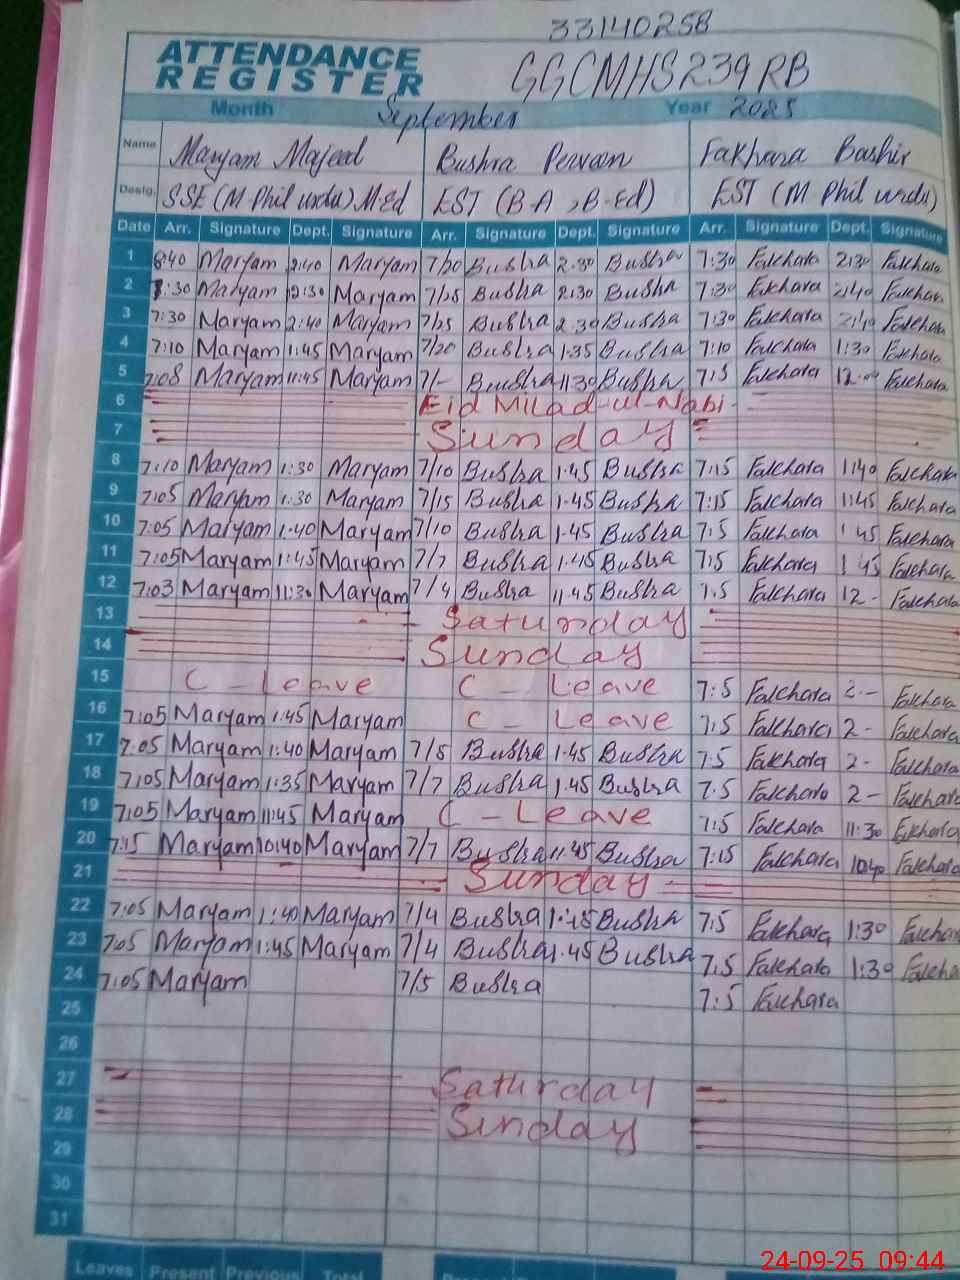 33140258
ATTENDANCE REGISTER GGCMHS 239 RB
Month September Year 2025
Name Maryam Majeed Bushra Perveen Fakhara Bashir
Desig. SSE (M Phil urdu) M.Ed EST (B-A, B-Ed) EST (M Phil urdu)
Date Arr. Signature Dept. Signature Arr. Signature Dept. Signature Arr. Signature Dept. Signature
1 8:40 Maryam 2:40 Maryam 7/20 Bushra 2:30 Bushra 7:30 Fakhara 2:30 Fakhara
2 7:30 Maryam 2:30 Maryam 7/25 Bushra 2:30 Bushra 7:30 Fakhara 2:40 Fakhara
3 7:30 Maryam 2:40 Maryam 7/25 Bushra 2:30 Bushra 7:30 Fakhara 2:40 Fakhara
4 7:10 Maryam 1:45 Maryam 7/20 Bushra 1:35 Bushra 7:10 Fakhara 1:30 Fakhara
5 7:08 Maryam 11:45 Maryam 7/- Bushra 11:30 Bushra 7:5 Fakhara 12:00 Fakhara
6 Eid Milad-ul-Nabi
7 Sunday
8 7:10 Maryam 1:30 Maryam 7/10 Bushra 1:45 Bushra 7:15 Fakhara 1:40 Fakhara
9 7:05 Maryam 1:30 Maryam 7/15 Bushra 1:45 Bushra 7:15 Fakhara 1:45 Fakhara
10 7:05 Maryam 1:40 Maryam 7/10 Bushra 1:45 Bushra 7:5 Fakhara 1:45 Fakhara
11 7:05 Maryam 1:45 Maryam 7/7 Bushra 1:45 Bushra 7:5 Fakhara 1:45 Fakhara
12 7:03 Maryam 11:30 Maryam 7/4 Bushra 11:45 Bushra 7:5 Fakhara 12- Fakhara
13 Saturday
14 Sunday
15 C-Leave C-Leave 7:5 Fakhara 2-- Fakhara
16 7:05 Maryam 1:45 Maryam C-Leave 7:5 Fakhara 2- Fakhara
17 7:05 Maryam 1:40 Maryam 7/5 Bushra 1:45 Bushra 7:5 Fakhara 2- Fakhara
18 7:05 Maryam 1:35 Maryam 7/7 Bushra 1:45 Bushra 7:5 Fakhara 2- Fakhara
19 7:05 Maryam 11:45 Maryam C-Leave 7:5 Fakhara 11:30 Fakhara
20 7:15 Maryam 10:40 Maryam 7/7 Bushra 11:45 Bushra 7:15 Fakhara 10:40 Fakhara
21 Sunday
22 7:05 Maryam 1:40 Maryam 7/4 Bushra 1:45 Bushra 7:5 Fakhara 1:30 Fakhara
23 7:05 Maryam 1:45 Maryam 7/4 Bushra 1:45 Bushra 7:5 Fakhara 1:30 Fakhara
24 7:05 Maryam 7/5 Bushra 7:5 Fakhara
25
26
27 Saturday
28 Sunday
29
30
31
Leaves Present Previous Total
24-09-25 09:44